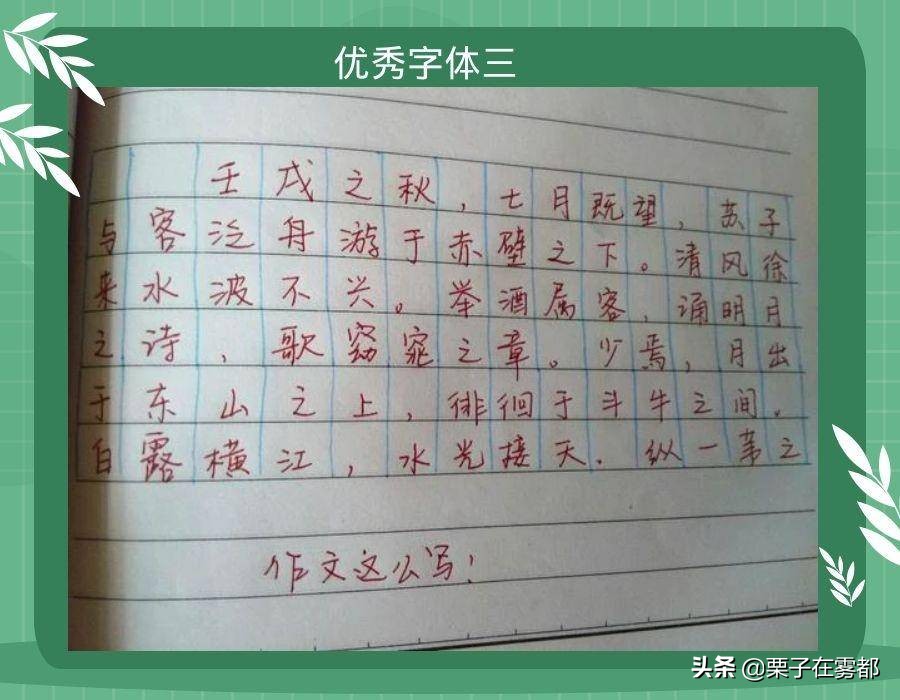 优秀字体三
壬戌之秋,七月既望,苏子
与客泛舟游于赤壁之下。清风徐
来水波不兴。举酒属客,诵明月
之诗,歌窈窕之章。少焉,月出
于东山之上,徘徊于斗牛之间。
白露横江,水光接天.纵一苇之
作文这么写!
头条 @栗子在雾都